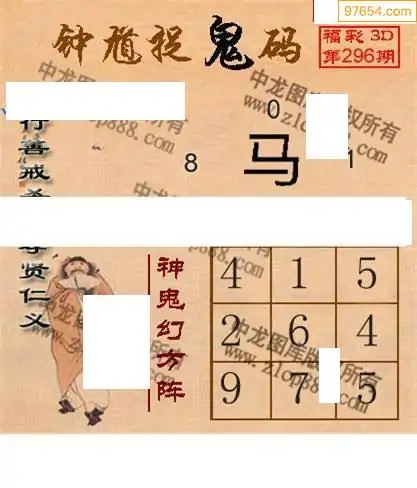 97654.com
钟馗捉鬼码
福彩3D
第296期
0
8 马 1
行善戒
尊贤仁义
神鬼幻方阵
4 1 5
2 6 4
9 7 5
中龙图库版权所有
www.zlop888.com